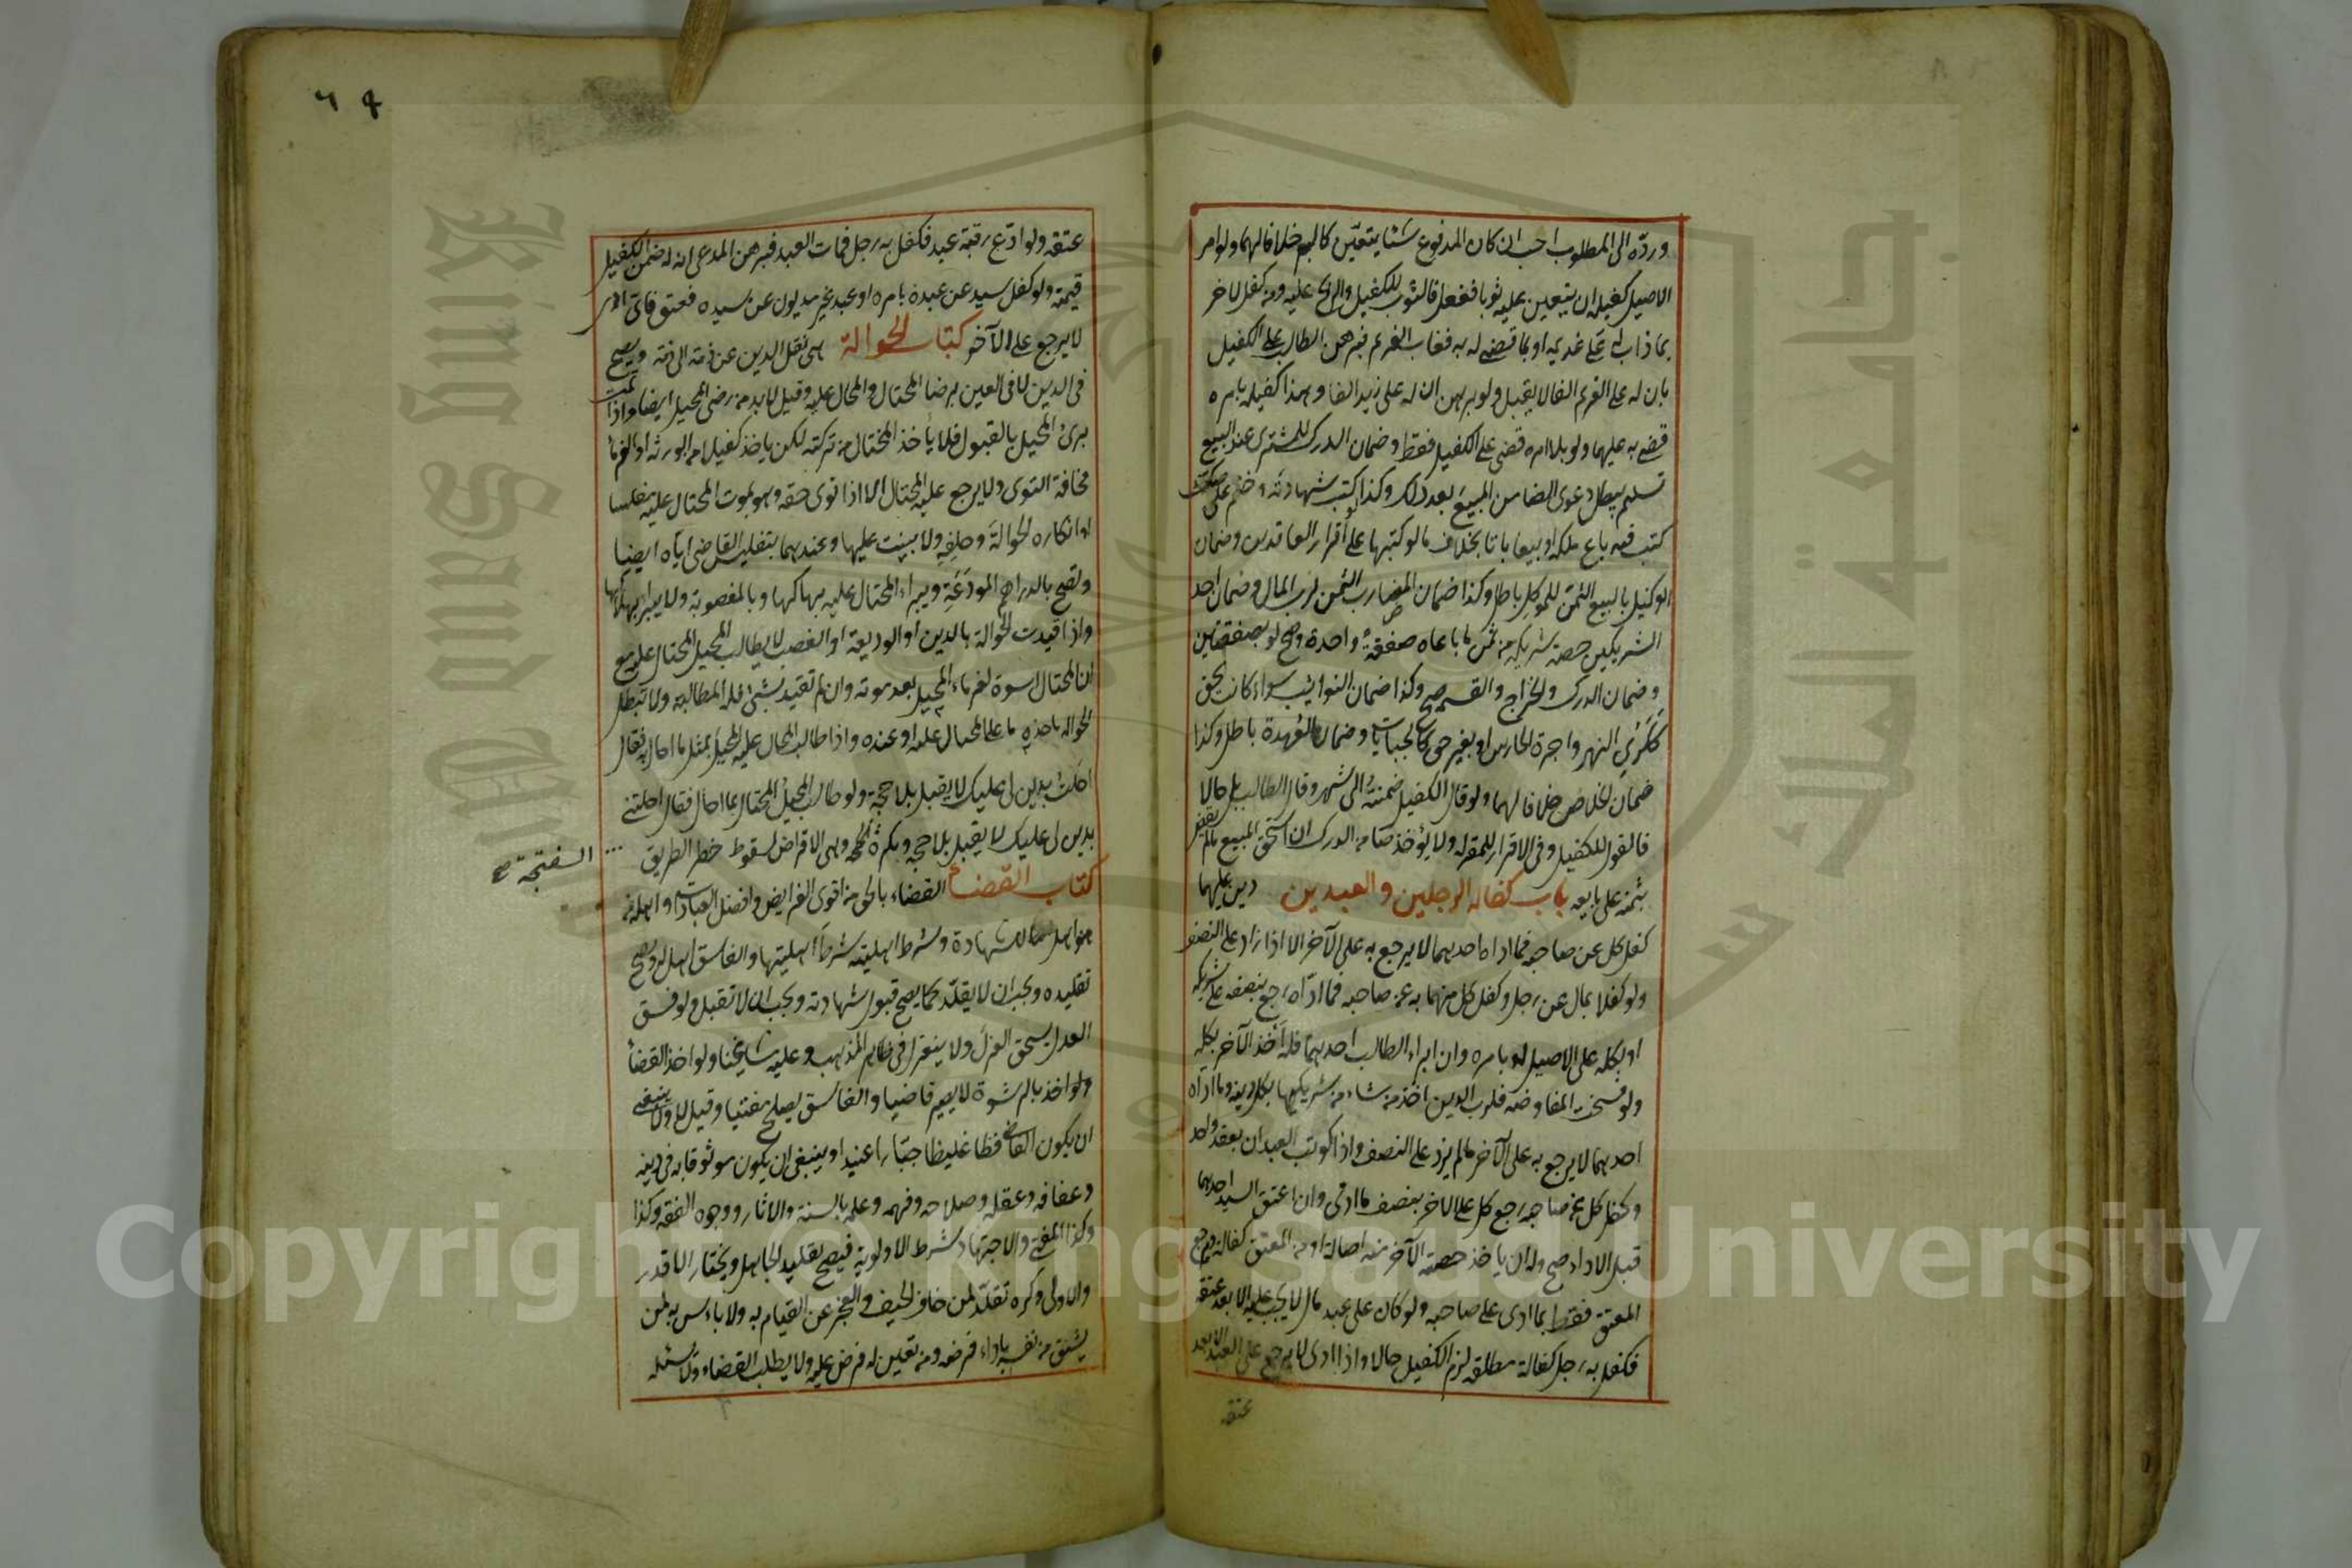 ورده الى المطلوب احب ان كان المدفوع شئا يتعين كالبر خلافا لهما ولو امر
الاصيل كفيله ان يتعين عليه ثوبا ففعل فالثوب للكفيل والربح عليه ومن كفل لآخر
بما ذاب له على غريمه او بما قضى له به فغاب الغريم فبرهن الطالب على الكفيل
بان له على الغريم الفا لا يقبل ولو برهن ان له على زيد الفا وهذا كفيله بامره
قضى به عليهما ولو بلا امره قضى على الكفيل فقط وضمان الدرك للمشترى عند البيع
تسليم يبطل دعوى الضامن المبيع بعد ذلك وكذا كتب شهادته وختم على صك
كتب فيه باع ملكه او بيعا باتا بخلاف ما لو كتبها على اقرار العاقدين وضمان
الوكيل بالبيع الثمن للموكل باطل وكذا ضمان المضارب الثمن لرب المال وضمان احد
الشريكين حصة شريكه من ثمن ما باعاه صفقة واحدة وصح لو بصفقتين
وضمان الدرك والخراج والقسمة صحيح وكذا ضمان النوائب سواء كانت بحق
ككرى النهر واجرة الحارس او بغير حق كالجبايات وضمان العهدة باطل وكذا
ضمان الخلاص خلافا لهما ولو قال الكفيل ضمنته الى شهر وقال الطالب بل حالا
فالقول للكفيل وفى الاقرار للمقر له ولا يؤخذ ضامن الدرك ان استحق المبيع مالم يقض
بثمنه على بايعه باب كفالة الرجلين والعبدين دين عليهما
كفل كل عن صاحبه فما اداه احدهما لا يرجع به على الآخر الا اذا زاد على النصف
ولو كفلا بمال عن رجل وكفل كل منهما به عن صاحبه فما اداه رجع بنصفه على شريكه
او بكله على الاصيل لو بامره وان ابراء الطالب احدهما فله اخذ الآخر بكله
ولو فسخت المفاوضة فلرب الدين اخذ من شاء من شريكيها بكل دينه وما اداه
احدهما لا يرجع به على الآخر مالم يزد على النصف واذا كوتب العبدان بعقد واحد
وكفل كل عن صاحبه رجع كل على الاخر بنصف ما ادى وان اعتق السيد احدهما
قبل الاداء صح وله ان ياخذ حصة الآخر منه اصالة او من المعتق كفالة ورجع
المعتق فقط بما ادى على صاحبه ولو كان على عبد مال لا يجب عليه الا بعد عتقه
فكفل به رجل كفالة مطلقة لزم الكفيل حالا واذا ادى لا يرجع على العبد الا بعد
عتقه
٦٩
عتقه ولو ادع رقبة عبد فكفل به رجل فمات العبد فبرهن المدعى انه له ضمن الكفيل
قيمته ولو كفل سيد عن عبده بامره او عبد غير مديون عن سيده فعتق فاى ادى
لا يرجع على الآخر كتاب الحوالة هى نقل الدين عن ذمة الى ذمة ويصح
فى الدين لا فى العين برضا المحتال والمحال عليه وقيل لا بد من رضى المحيل ايضا واذا تمت
برئ المحيل بالقبول فلا يأخذ المحتال من تركته لكن ياخذ كفيلا من الورثة او الغرماء
مخافة التوى ولا يرجع عليه المحتال الا اذا توى حقه وهو بموت المحتال عليه مفلسا
او انكاره الحوالة وحلفه ولا بينت عليها وعندهما بتفليس القاضى اياه ايضا
وتصح بالدراهم المودعة ويبراء المحتال عليه بهلاكها وبالمغصوبة ولا يبراء بهلاكها
واذا قيدت الحوالة بالدين او الوديعة او الغصب لا يطالب المحيل المحتال عليه مع
ان المحتال اسوة لغرماء المحيل بعد موته وان لم تقيد بشئ فله المطالبة ولا تبطل
الحوالة باخذه ما على المحتال عليه او عنده واذا طالب المحال عليه المحيل بمثل ما احال فقال
احلت بدين لى عليك لا يقبل بلا حجة ولو طالب المحيل المحتال بما احال فقال احلتنى
بدين لى عليك لا يقبل بلا حجة ويكره وهى الاقراض لسقوط خطر الطريق
السفتجة صح
كتاب القضاء القضاء بالحق من اقوى الفرايض وافضل العبادات واهله من
هو اهل للشهادة وشرط اهليته شرط اهليتها والفاسق اهل له ويصح
تقليده ويجب ان لا يقلد كما يصح قبول شهادته ويجب ان لا تقبل ولو فسق
العدل يستحق العزل ولا ينعزل فى ظاهر المذهب وعليه مشايخنا ولو اخذ القضاء
ولو اخذ بالرشوة لا يصير قاضيا والفاسق يصلح مفتيا وقيل لا ولا ينبغى
ان يكون القاضى فظا غليظا جبارا عنيدا وينبغى ان يكون موثوقا به فى دينه
وعفافه وعقله وصلاحه وفهمه وعلمه بالسنة والاثار ووجوه الفقه وكذا
وكذا المفتى والاجتهاد شرط الاولوية فيصح تقليد الجاهل ويختار الاقدر
والاولى وكره تقلد لمن خاف الحيف والعجز عن القيام به ولا باءس به لمن
يثق من نفسه باداء فرضه ومن تعين له فرض عليه ولا يطلب القضاء ولا يسئله
King Saud University
جامعة الملك سعود
Copyright © King Saud University